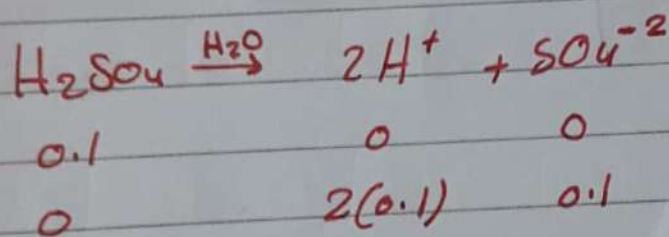 H₂SO₄ H₂O→ 2H⁺ + SO₄⁻²
0.1 0 0
0 2(0.1) 0.1